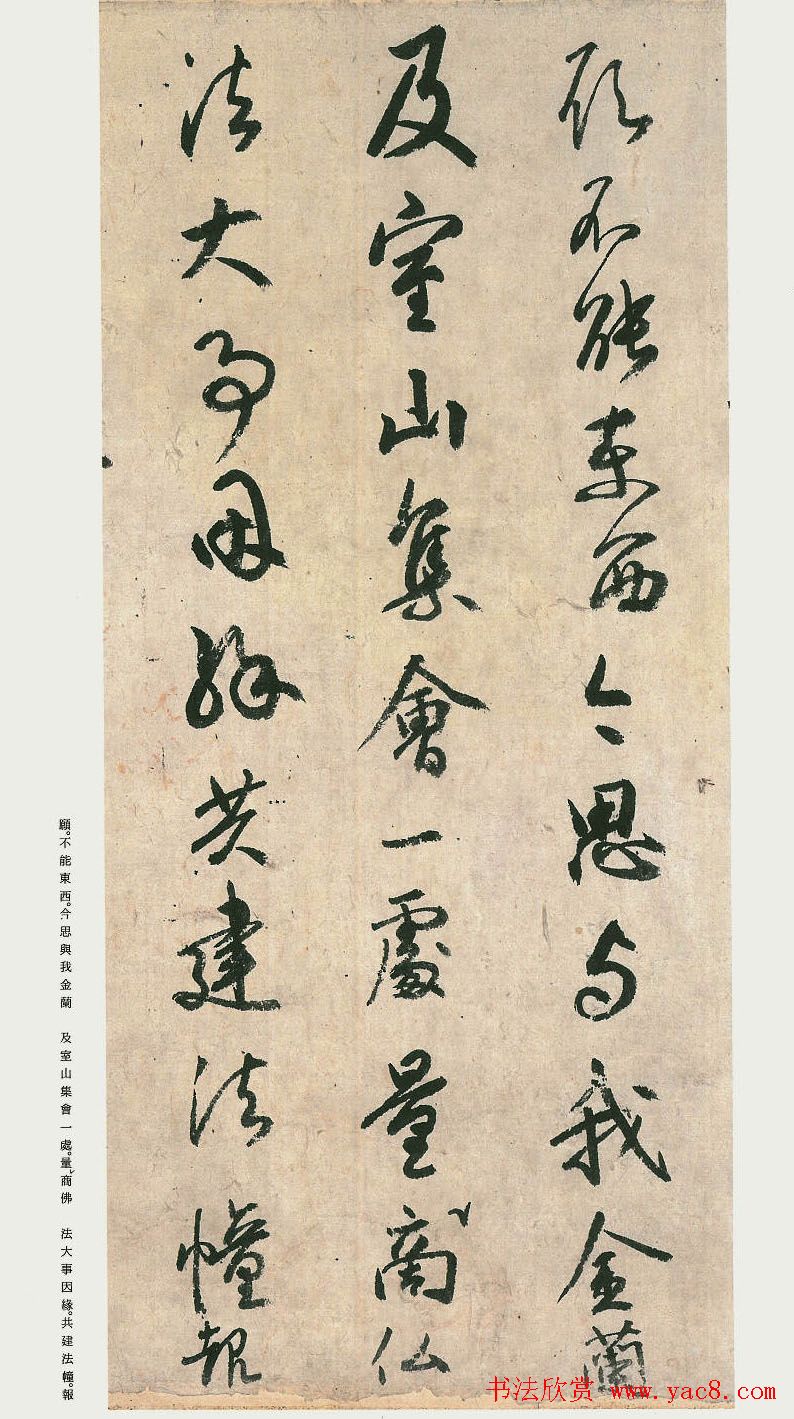 顧不能東西今思与我金蘭
及室山集會一處量商仏
法大事因緣共建法幢報
願。不能東西。今思與我金蘭　及室山集會一處。量商佛　法大事因緣。共建法幢。報
书法欣赏 www.yac8.com